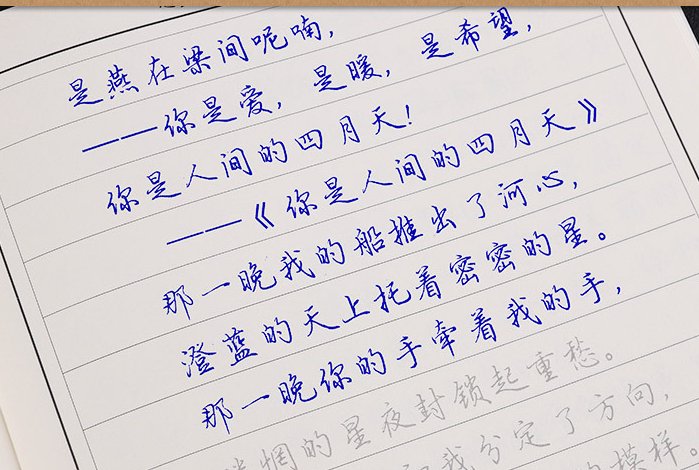 是燕在梁间呢喃，
——你是爱，是暖，是希望，
你是人间的四月天！
——《你是人间的四月天》
那一晚我的船推出了河心，
澄蓝的天上托着密密的星。
那一晚你的手牵着我的手，
惘的星夜封锁起重愁。
我分定了方向，
模样。